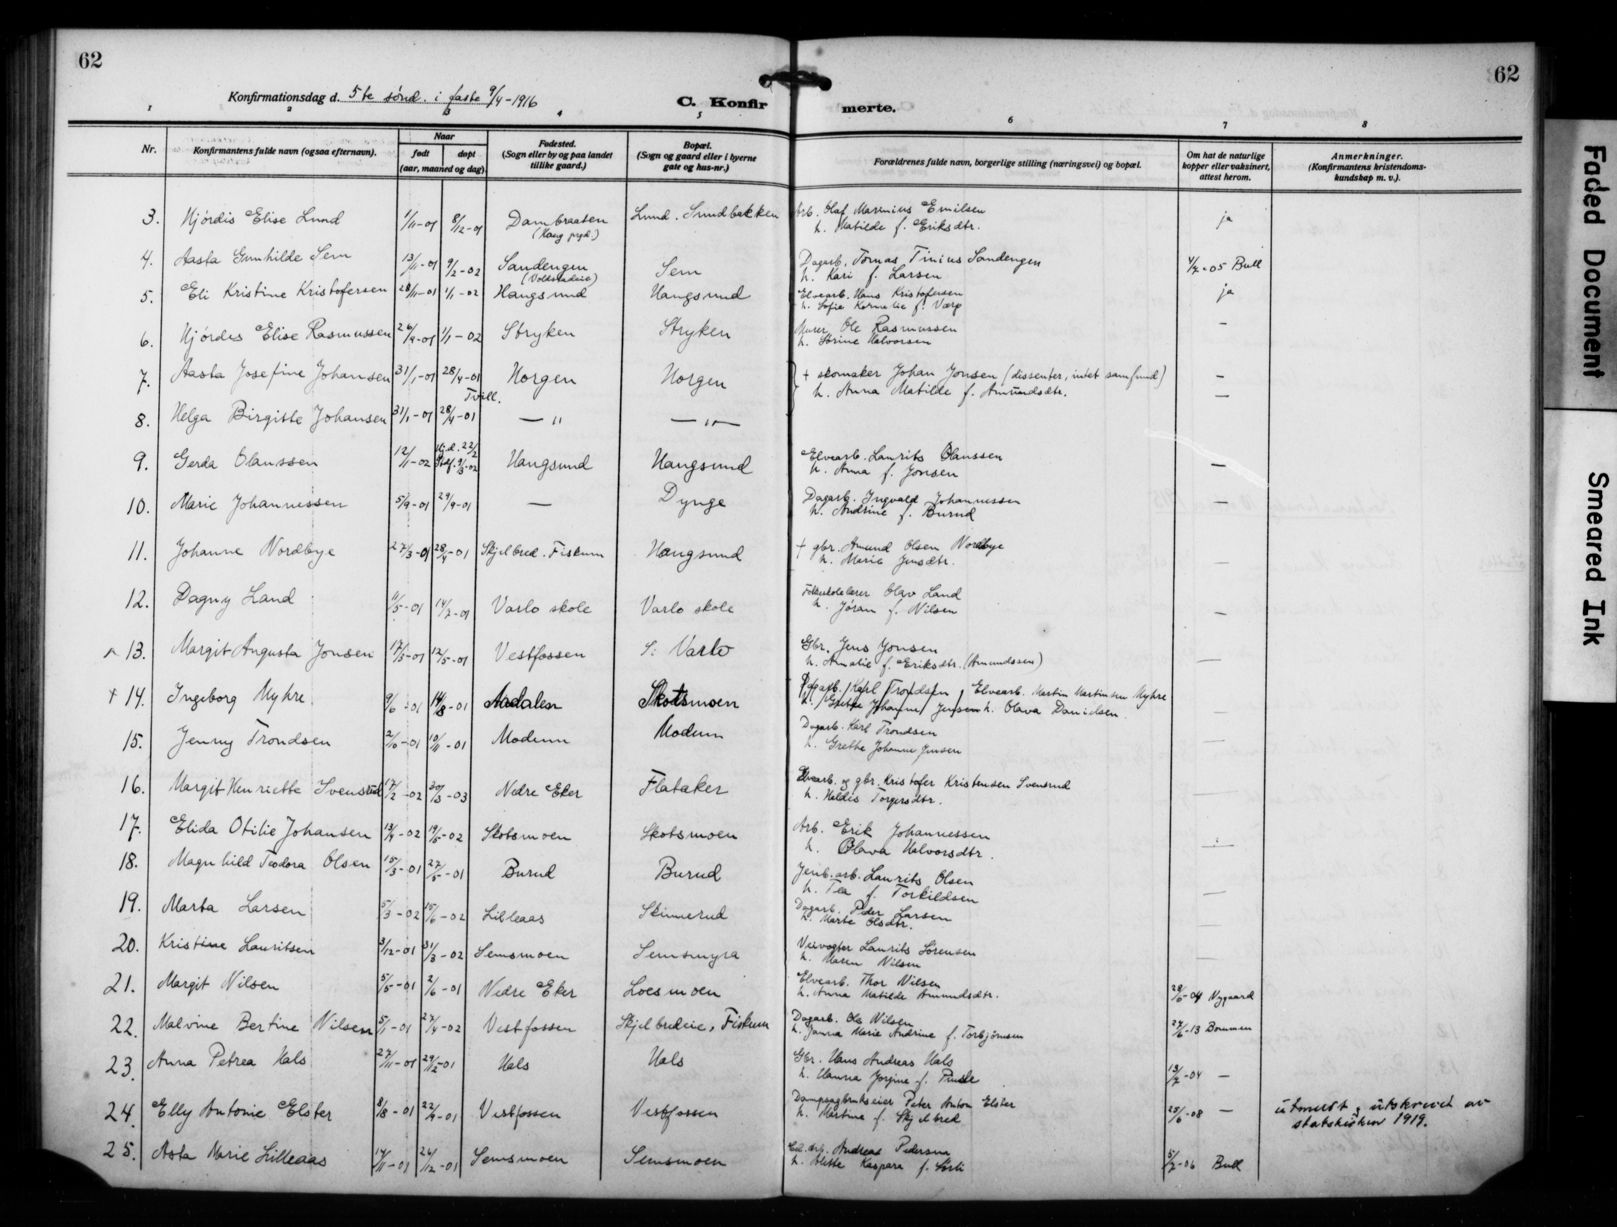 62
62
Konfirmationsdag d. 5te sønd. i faste 9/4-1916
C. Konfir merte.
1 2 3 4 5 6 7 8
Nr.
Konfirmantens fulde navn (ogsaa efternavn).
Naar
født
døpt
(aar, maaned og dag).
Fødested.
(Sogn eller by og paa landet
tillike gaard.)
Bopæl.
(Sogn og gaard eller i byerne
gate og hus-nr.)
Forældrenes fulde navn, borgerlige stilling (næringsvei) og bopæl.
Om hat de naturlige
kopper eller vaksinert,
attest herom.
Anmerkninger.
(Konfirmantens kristendoms-
kundskap m. v.).
3. Hjørdis Elise Lund 1/11-01 8/12-01 Dambraaten Lund. Smedbakken Arb. Olaf Marinius Emilsen ja
h. Matilde f. Eriksdtr.
4. Aasta Gunhilde Sem 13/11-01 9/2-02 Sandengen Sem Dagarb. Tomas Tinius Sandengen 4/7-05 Bull
h. Kari f. Larsen
5. Eli Kristine Kristofersen 28/11-01 1/1-02 Hangsund Hangsund Elvearb. Hans Kristofersen ja
h. Sofie Kornelie f. Værp
6. Hjørdis Elise Rasmussen 26/9-01 1/1-02 Stryken Stryken Murer Ole Rasmussen -
h. Sørine Halvorsen
7. Aasta Josefine Johansen 31/1-01 28/4-01 Horgen Horgen + skomaker Johan Jonsen (dissenter, intet samfund) -
Tvill. h. Anna Matilde f. Amundsdtr. -
8. Helga Birgitte Johansen 31/1-01 28/4-01 - " - - " -
9. Gerda Olaussen 12/11-02 Hjd. 22/2 Hangsund Hangsund Elvearb. Laurits Olaussen -
h. Anna f. Jonsen
10. Marie Johannessen 5/9-01 29/9-01 - Dynge Dagarb. Ingvald Johannessen -
h. Andrine f. Burud
11. Johanne Nordbye 27/3-01 28/4-01 Skjelbred. Fiskum Hangsund + gbr. Amund Olsen Nordbye -
h. Marie Jensdtr.
12. Dagny Land 11/5-01 14/7-01 Varlo skole Varlo skole Folkeskolelærer Olav Land -
h. Jøran f. Nilsen
13. Margit Augusta Jonsen 17/3-01 12/5-01 Vestfossen S: Varlo Gbr. Jens Jonsen -
h. Amalie f. Eriksdtr. (Amundssen)
+ 14. Ingeborg Myhre 9/6-01 14/8-01 Aadalen Skotsmoen Dagarb. Karl Trondsen, Elvearb. Martin Martinsen Myhre -
h. Grethe Johanne Jensen h. Olava Danielsen.
15. Jenny Trondsen 2/10-01 10/11-01 Modum Modum Dagarb. Karl Trondsen -
h. Grethe Johanne Jensen
16. Margit Henriette Svensrud 17/2-02 30/3-03 Nedre Eker Flataker Elvearb. og gbr. Kristofer Kristensen Svensrud -
h. Hildis Torgersdtr.
17. Elida Otilie Johansen 13/4-02 19/5-02 Skotsmoen Skotsmoen Arb. Erik Johannessen -
h. Olava Halvorsdtr.
18. Magnhild Teodora Olsen 15/3-01 27/5-01 Burud Burud Jernb.arb. Laurits Olsen -
h. Tea f. Torkildsen
19. Marta Larsen 5/3-02 15/6-02 Lilleaas Skinnerud Dagarb. Peder Larsen -
h. Marte Olsdtr.
20. Kristine Lauritsen 3/12-01 31/3-02 Semsmoen Semsmyra Veivogter Laurits Sørensen -
h. Maren Nilsen
21. Margit Nilsen 5/5-01 2/6-01 Nedre Eker Loesmoen Elvearb. Thor Nilsen 28/6-04 Nygaard
h. Anna Matilde Amundsdtr.
22. Malvine Bertine Nilsen 5/1-01 27/4-02 Vestfossen Skjelbredeie, Fiskum Dagarb. Ole Nilsen 27/6-13 Bommen
h. Janna Marie Andrine f. Torbjørnsen
23. Anna Petrea Hals 27/11-01 29/12-01 Hals Hals Gbr. Hans Andreas Hals 13/7-04 -
h. Hanna Jorgine f.
24. Elly Antonie Elster 8/8-01 22/9-01 Vestfossen Vestfossen Dampsagbrukseier Peter Anton Elster 25/6-08 - utmeldt, utskrevet av
h. Martine f. Skjelbred statskirken 1919.
25. Asta Marie Lilleaas 17/11-01 26/12-01 Semsmoen Semsmoen Andreas Pedersen 5/7-06 Bull
h. Alette Kaspara f. Sørli
Faded Document
Smeared Ink